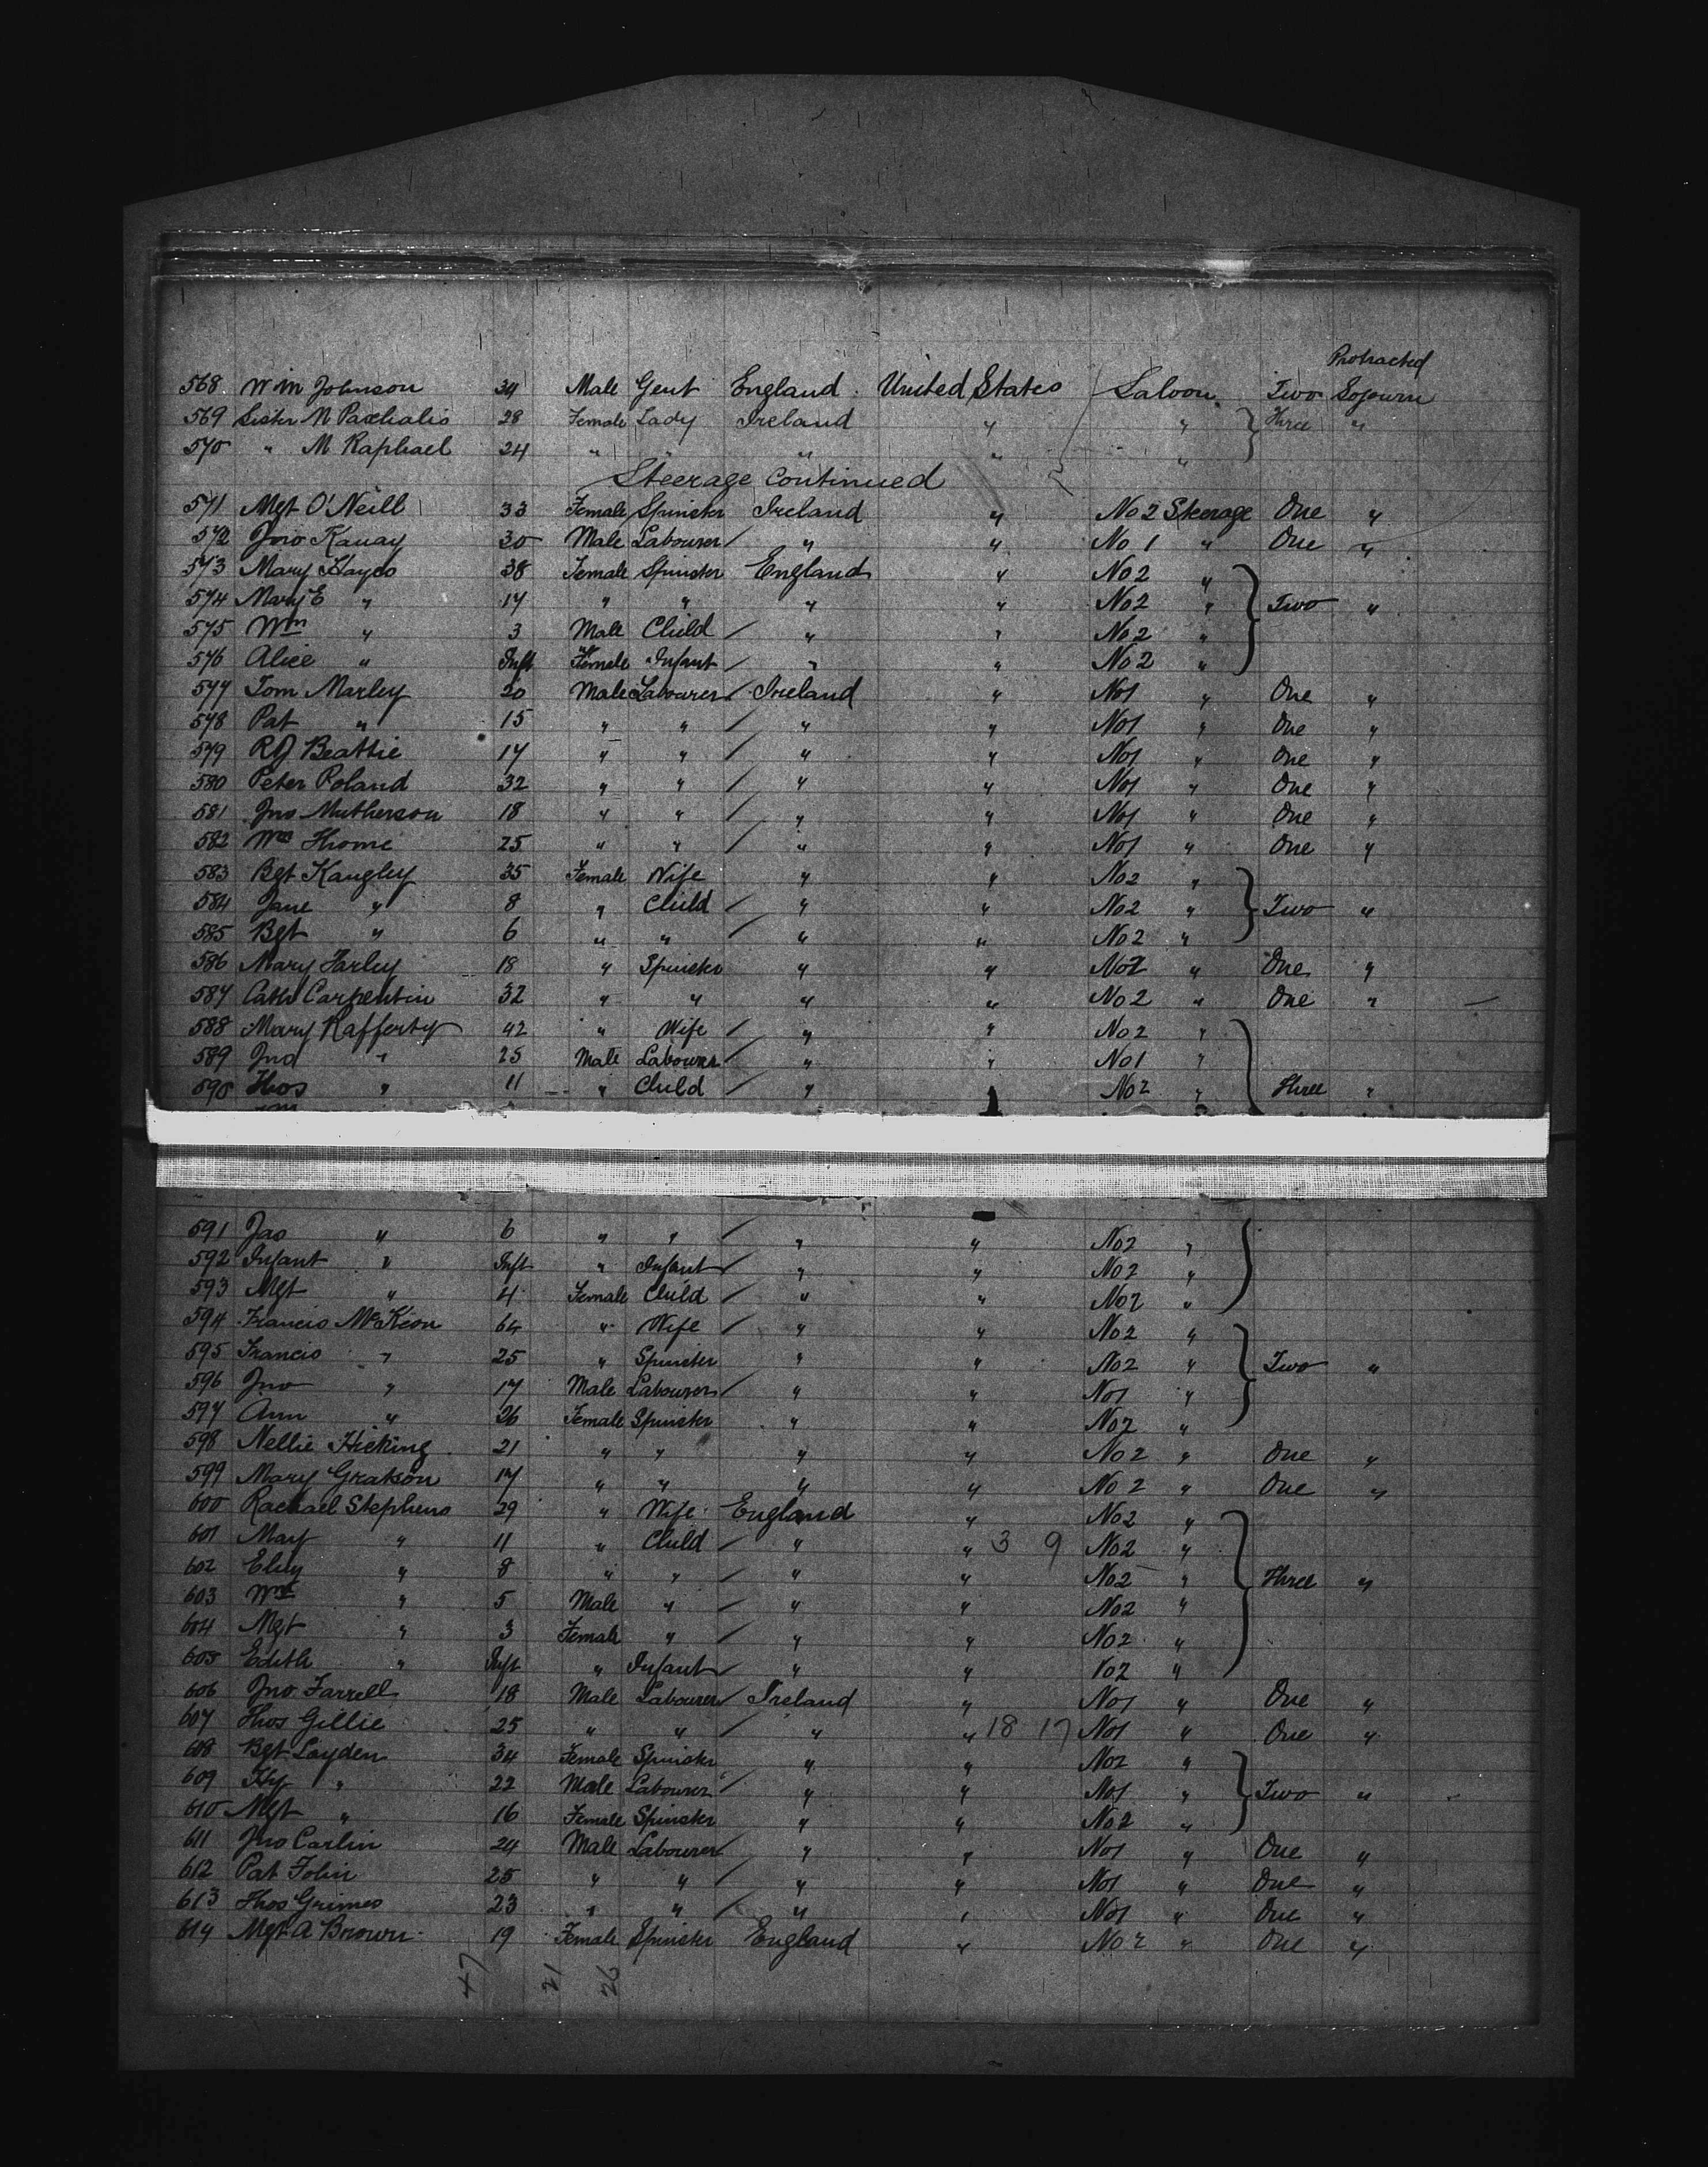 Protracted
568 Wm Johnson 34 Male Gent England United States Saloon Two Sojourn
569 Sister M Paschalis 28 Female Lady Ireland " " Three "
570 " M Raphael 24 " " " " "
Steerage Continued
571 Mgt O'Neill 33 Female Spinster Ireland " No 2 Steerage One "
572 Jno Kanay 30 Male Labourer / " " No 1 " One "
573 Mary Hayes 38 Female Spinster England " No 2 "
574 Mary E " 17 " " " " No 2 " Two "
575 Wm " 3 Male Child / " " No 2 "
576 Alice " Inft Female Infant / " " No 2 "
577 Tom Marley 20 Male Labourer / Ireland " No 1 " One "
578 Pat " 15 " " / " " No 1 " One "
579 RJ Beattie 17 " " / " " No 1 " One "
580 Peter Roland 32 " " / " " No 1 " One "
581 Jno Mutherson 18 " " / " " No 1 " One "
582 Wm Thome 25 " " / " " No 1 " One "
583 Bgt Kangley 35 Female Wife " " No 2 "
584 Jane " 8 " Child / " " No 2 " Two "
585 Bgt " 6 " " / " " No 2 "
586 Mary Farley 18 " Spinster " " No 2 " One "
587 Cath Carpentin 32 " " " " No 2 " One "
588 Mary Rafferty 42 " Wife / " " No 2 "
589 Jno " 25 Male Labourer / " " No 1 "
590 Thos " 11 " Child / " No 2 " Three "
591 Jas " 6 " " / " " No 2 "
592 Infant " Inft " Infant / " " No 2 "
593 Mgt " 4 Female Child / " " No 2 "
594 Francis McKeon 64 " Wife / " " No 2 "
595 Francis " 25 " Spinster " " No 2 " Two "
596 Jno " 17 Male Labourer / " " No 1 "
597 Ann " 26 Female Spinster " " No 2 "
598 Nellie Hicking 21 " " " " No 2 " One "
599 Mary Gratson 17 " " " " No 2 " One "
600 Rachael Stephens 29 " Wife England " No 2 "
601 May " 11 " Child / " " 3 9 No 2 "
602 " 8 " " / " " No 2 " Three "
603 Wm " 5 Male " / " " No 2 "
604 Mgt " 3 Female " / " " No 2 "
605 Edith " Inft " Infant / " " No 2 "
606 Jno Farrell 18 Male Labourer / Ireland " No 1 " One "
607 Thos Gillie 25 " " / " " 18 17 No 1 " One "
608 Bgt Layden 34 Female Spinster " " No 2 "
609 Hy " 22 Male Labourer / " " No 1 " Two "
610 Mgt " 16 Female Spinster " " No 2 "
611 Jno Carlin 24 Male Labourer " " No 1 " One "
612 Pat Tobin 25 " " / " " No 1 " One "
613 Thos Grimes 23 " " / " " No 1 " One "
614 Mgt A Brown 19 Female Spinster England " No 2 " One "
47 21 26